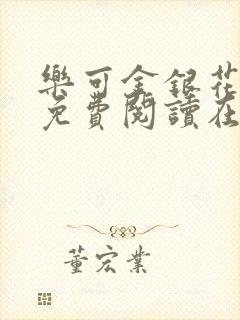 樂可金銀花
免費閱讀在
董宏業